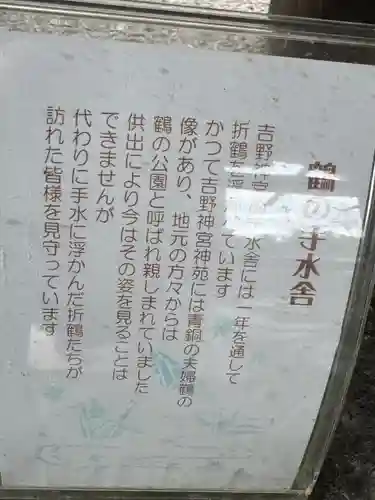 鶴の手水舎
吉野神宮 水舎には一年を通して
折鶴を浮 ています
かつて吉野神宮神苑には青銅の夫婦鶴の
像があり、地元の方々からは
鶴の公園と呼ばれ親しまれていました
供出により今はその姿を見ることは
できませんが
代わりに手水に浮かんだ折鶴たちが
訪れた皆様を見守っています